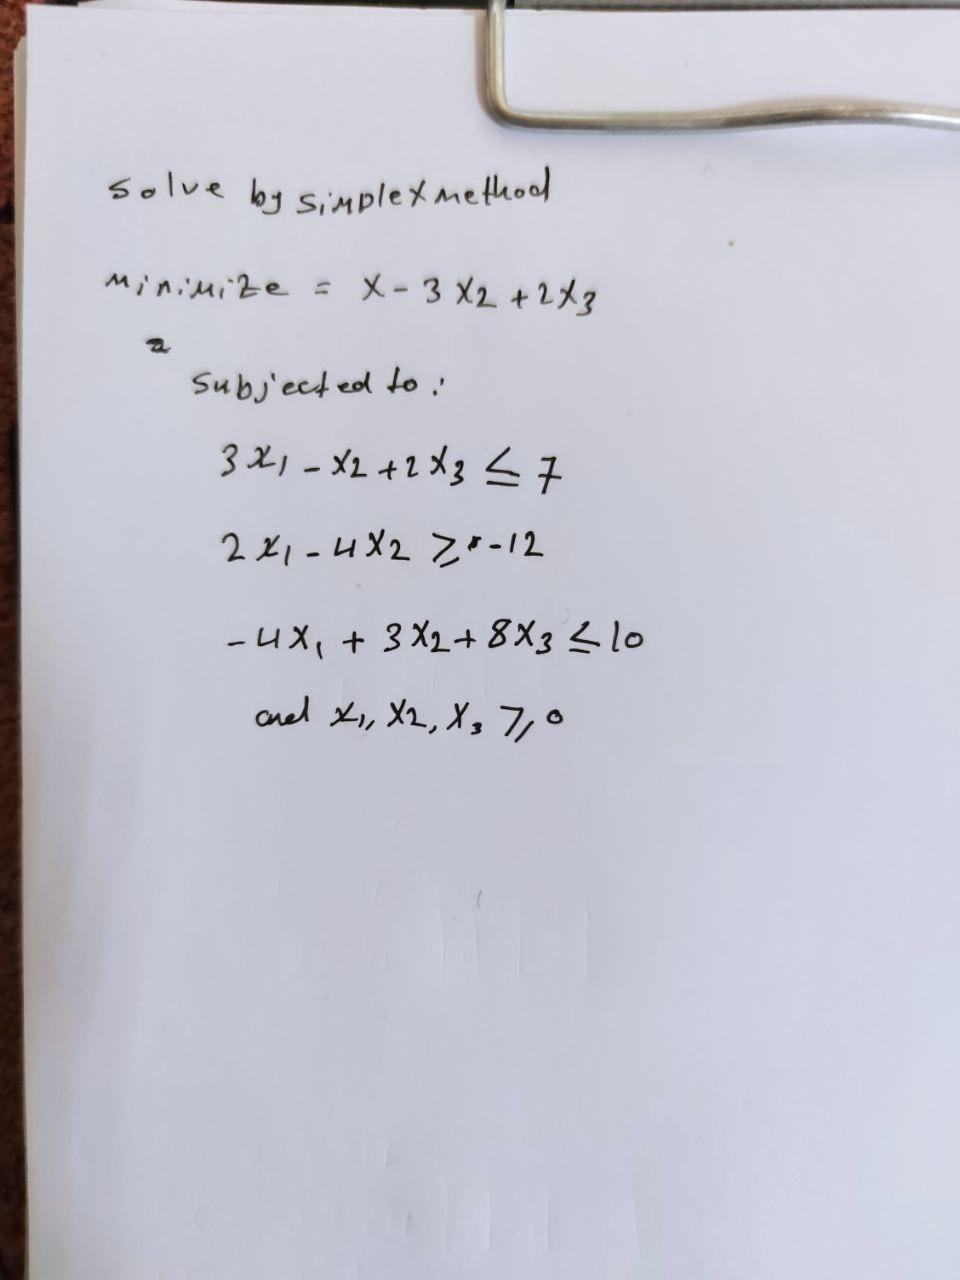 solve by simplex method
minimize = x - 3x2 + 2x3
subjected to:
3x1 - x2 + 2x3 ≤ 7
2x1 - 4x2 ≥ -12
-4x1 + 3x2 + 8x3 ≤ 10
and x1, x2, x3 ≥ 0